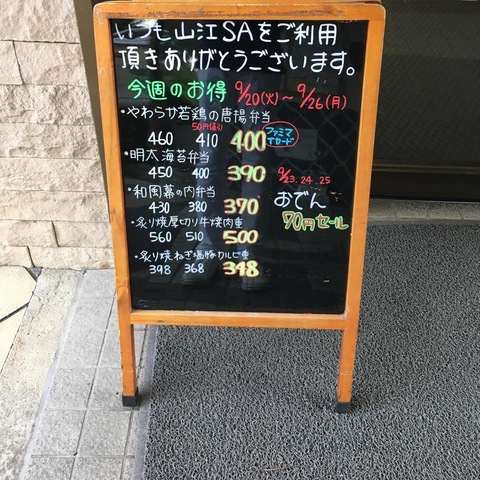 いつも山江SAをご利用
頂きありがとうございます。
今週のお得 9/20(火)～9/26(月)
・やわらか若鶏の唐揚弁当
50円値引
460 410 400 ファミマTカード
・明太海苔弁当
450 400 390
9/23.24.25
・和岡幕の内弁当
おでん
430 380 370
70円セール
・炙り焼厚切り牛焼肉重
560 510 500
・炙り焼ねぎ塩豚カルビ重
398 368 348